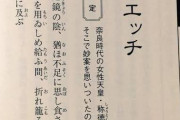 エッチ
定
奈良時代の女性天皇・称徳
そこで妙案を思いついたの
鏡の陰、猶ほ不足に思し食さ
を用ゐしめ給ふ間、折れ籠
に及ぶ